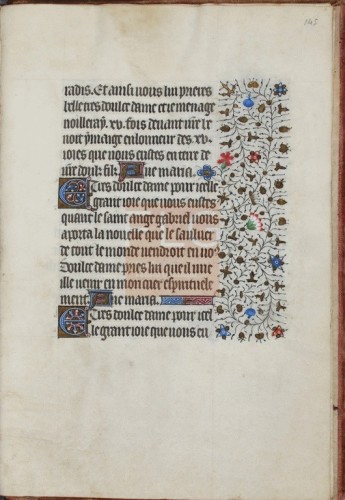 143
radis. Et ainsi nous lui prieres
belle tres doulce dame et ie me age
noilleray .xv. fois deuant vre be
noit ymaige en lonneur des .xv.
ioies que vous eustes en terre de
vre doulz filz. Aue maria.
E Tres doulce dame pour icelle
grant ioie que vous eustes
quant le saint ange gabriel vous
aporta la nouelle que le sauueur
de tout le monde vendroit en vo
Doulce dame pries lui que il vue
ille venir en mon cuer espirituele
ment. Aue maria.
E Tres doulce dame pour icel
le grant ioie que vous eu